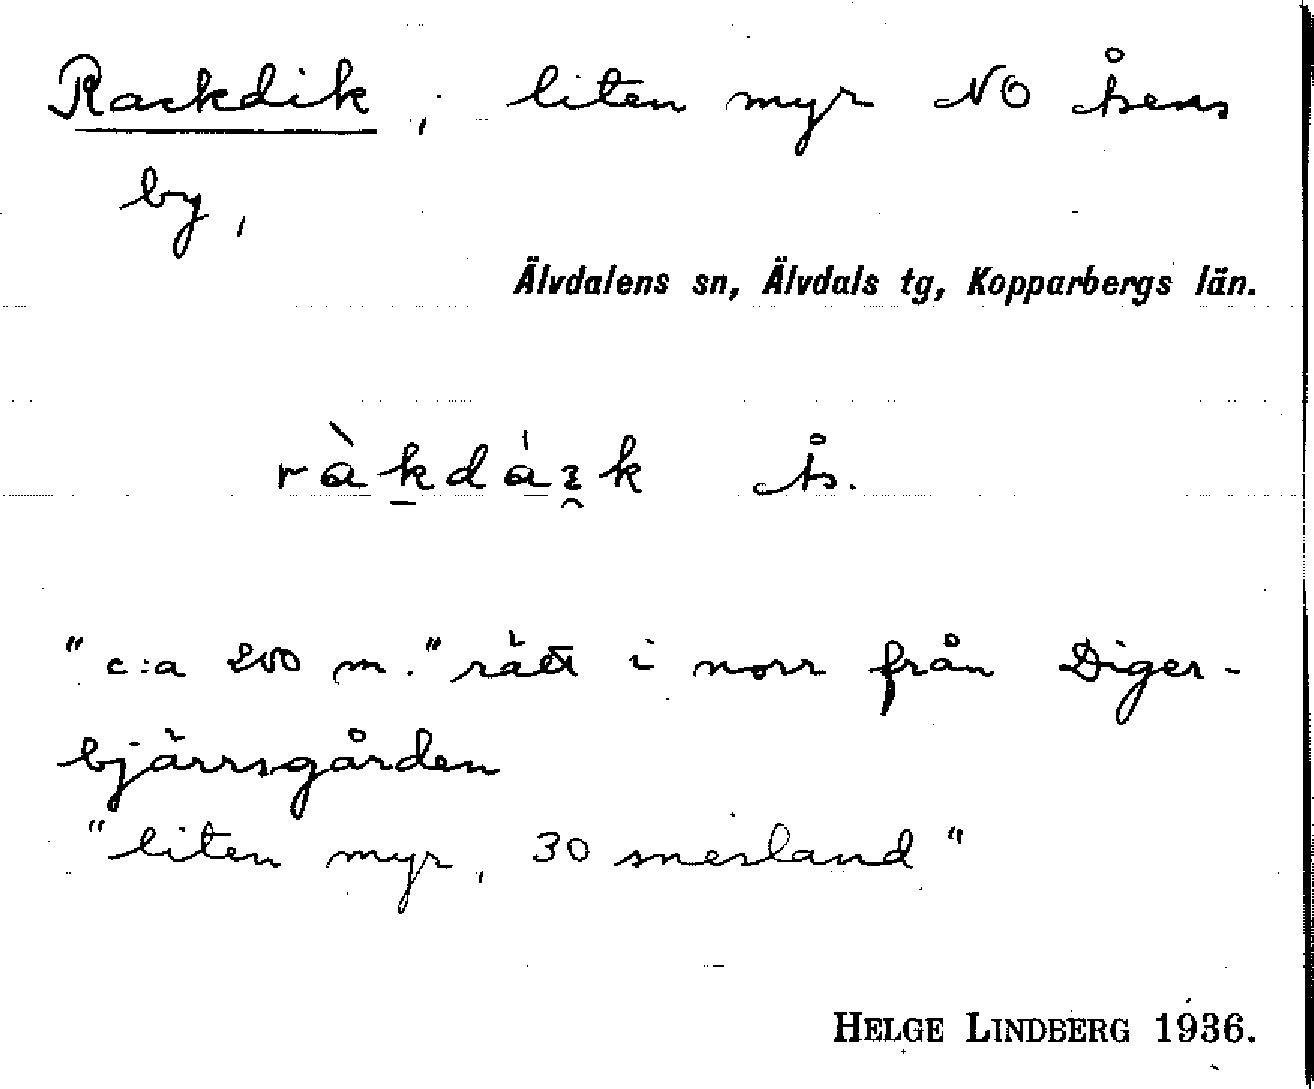 Rackdik, liten myr NO Åsens
by,
Älvdalens sn, Älvdals tg, Kopparbergs län.
ràk̠dáı̯k Ås.
"c:a 200 m." rätt i norr från Diger-
bjärrsgården
"liten myr, 30 snesland"
HELGE LINDBERG 1936.